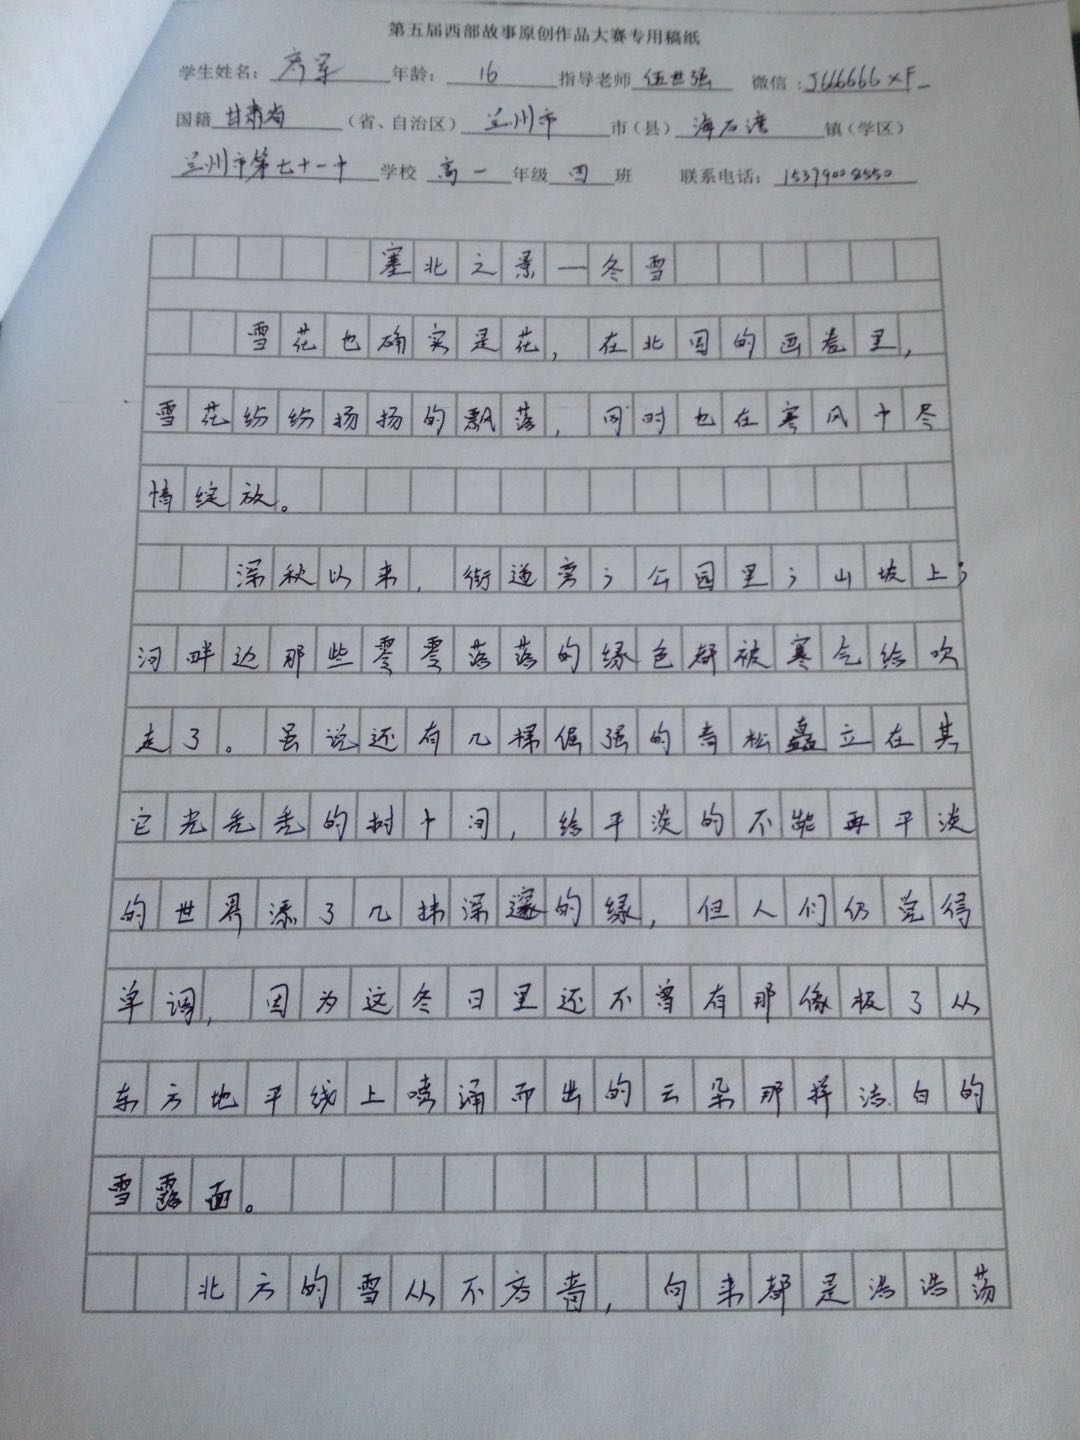 第五届西部故事原创作品大赛专用稿纸
学生姓名：齐军 年龄：16 指导老师 伍世强 微信：J666666XF
国籍 甘肃省（省、自治区） 兰州市 市（县） 海石湾 镇（学区）
兰州市第七十一中 学校 高一 年级 四 班 联系电话：15379008550
塞北之景—冬雪
雪花也确实是花，在北国的画卷里，
雪花纷纷扬扬的飘落，同时也在寒风中尽
情绽放。
深秋以来，街道旁；公园里；山坡上；
河畔边那些零零落落的绿色都被寒气给吹
走了。虽说还有几棵倔强的青松矗立在其
它光秃秃的树干间，给平淡的不能再平淡
的世界添了几抹深邃的绿，但人们仍觉得
单调，因为这冬日里还不曾有那像极了从
东方地平线上喷涌而出的云朵那样洁白的
雪露面。
北方的雪从不吝啬，向来都是浩浩荡